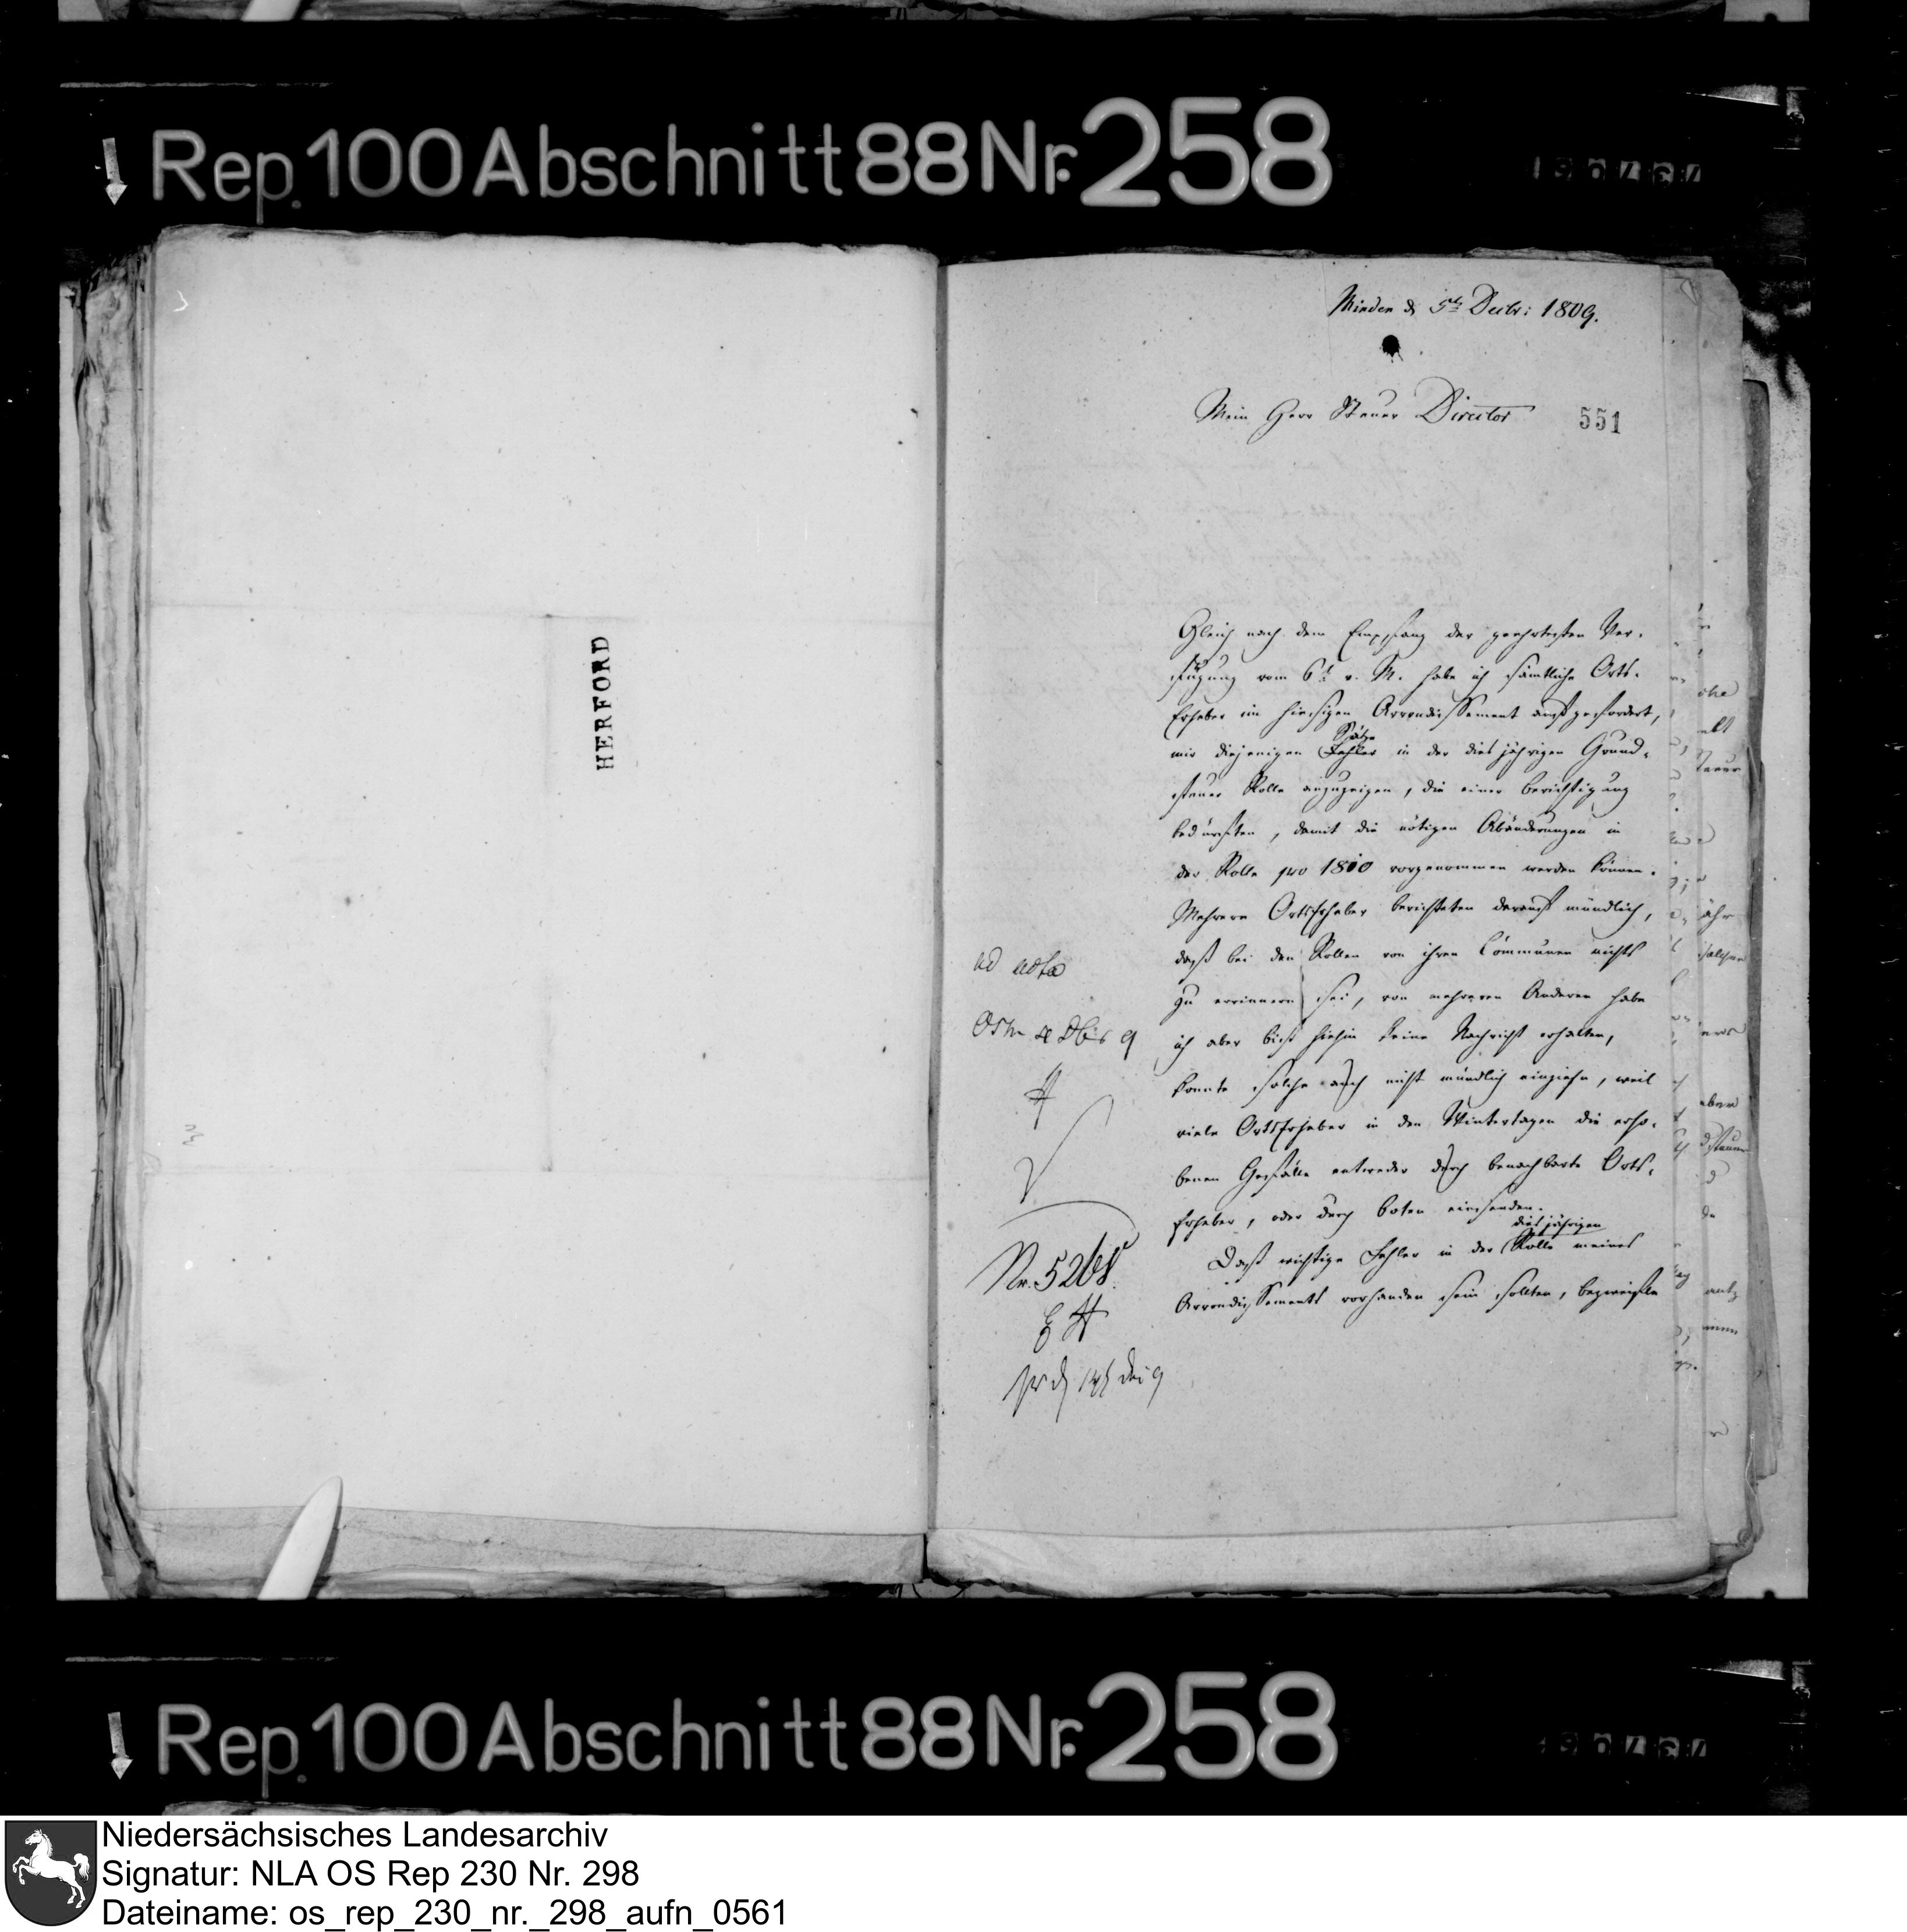 Rep. 100 Abschnitt 88 Nr. 258
HERFORD
Minden d 5ten Decbr: 1809.
Mein Herr Steuer Director
551
Gleich nach dem Empfang der geehrtesten Ver-
fügung vom 6t v. M. habe ich sämtliche Orts-
Erheber im hiesigen Arrondissement aufgefordert,
mir diejenigen Sätze Fehler in der dies jährigen Grund-
steuer Rolle anzuzeigen, die einer Berichtigung
bedürften, damit die nötigen Abänderungen in
der Rolle pro 1810 vorgenommen werden können.
Mehrere OrtsErheber berichteten darauf mündlich,
daß bei den Rollen von ihren Communen nichts
zu errinnern sei, von mehreren Anderen habe
ich aber bis hiehin keine Nachricht erhalten,
konnte solche auch nicht mündlich einziehn, weil
viele OrtsErheber in den Wintertagen die erho-
benen Gefälle entweder durch benachbarte Orts-
Erheber, oder durch Boten einsenden.
Daß wichtige Fehler in der dies jährigen Rolle meines
Arrondissements vorhanden sein sollten, bezweifle
ad acta
Nr. 5268
Rep. 100 Abschnitt 88 Nr. 258
Niedersächsisches Landesarchiv
Signatur: NLA OS Rep 230 Nr. 298
Dateiname: os_rep_230_nr._298_aufn_0561